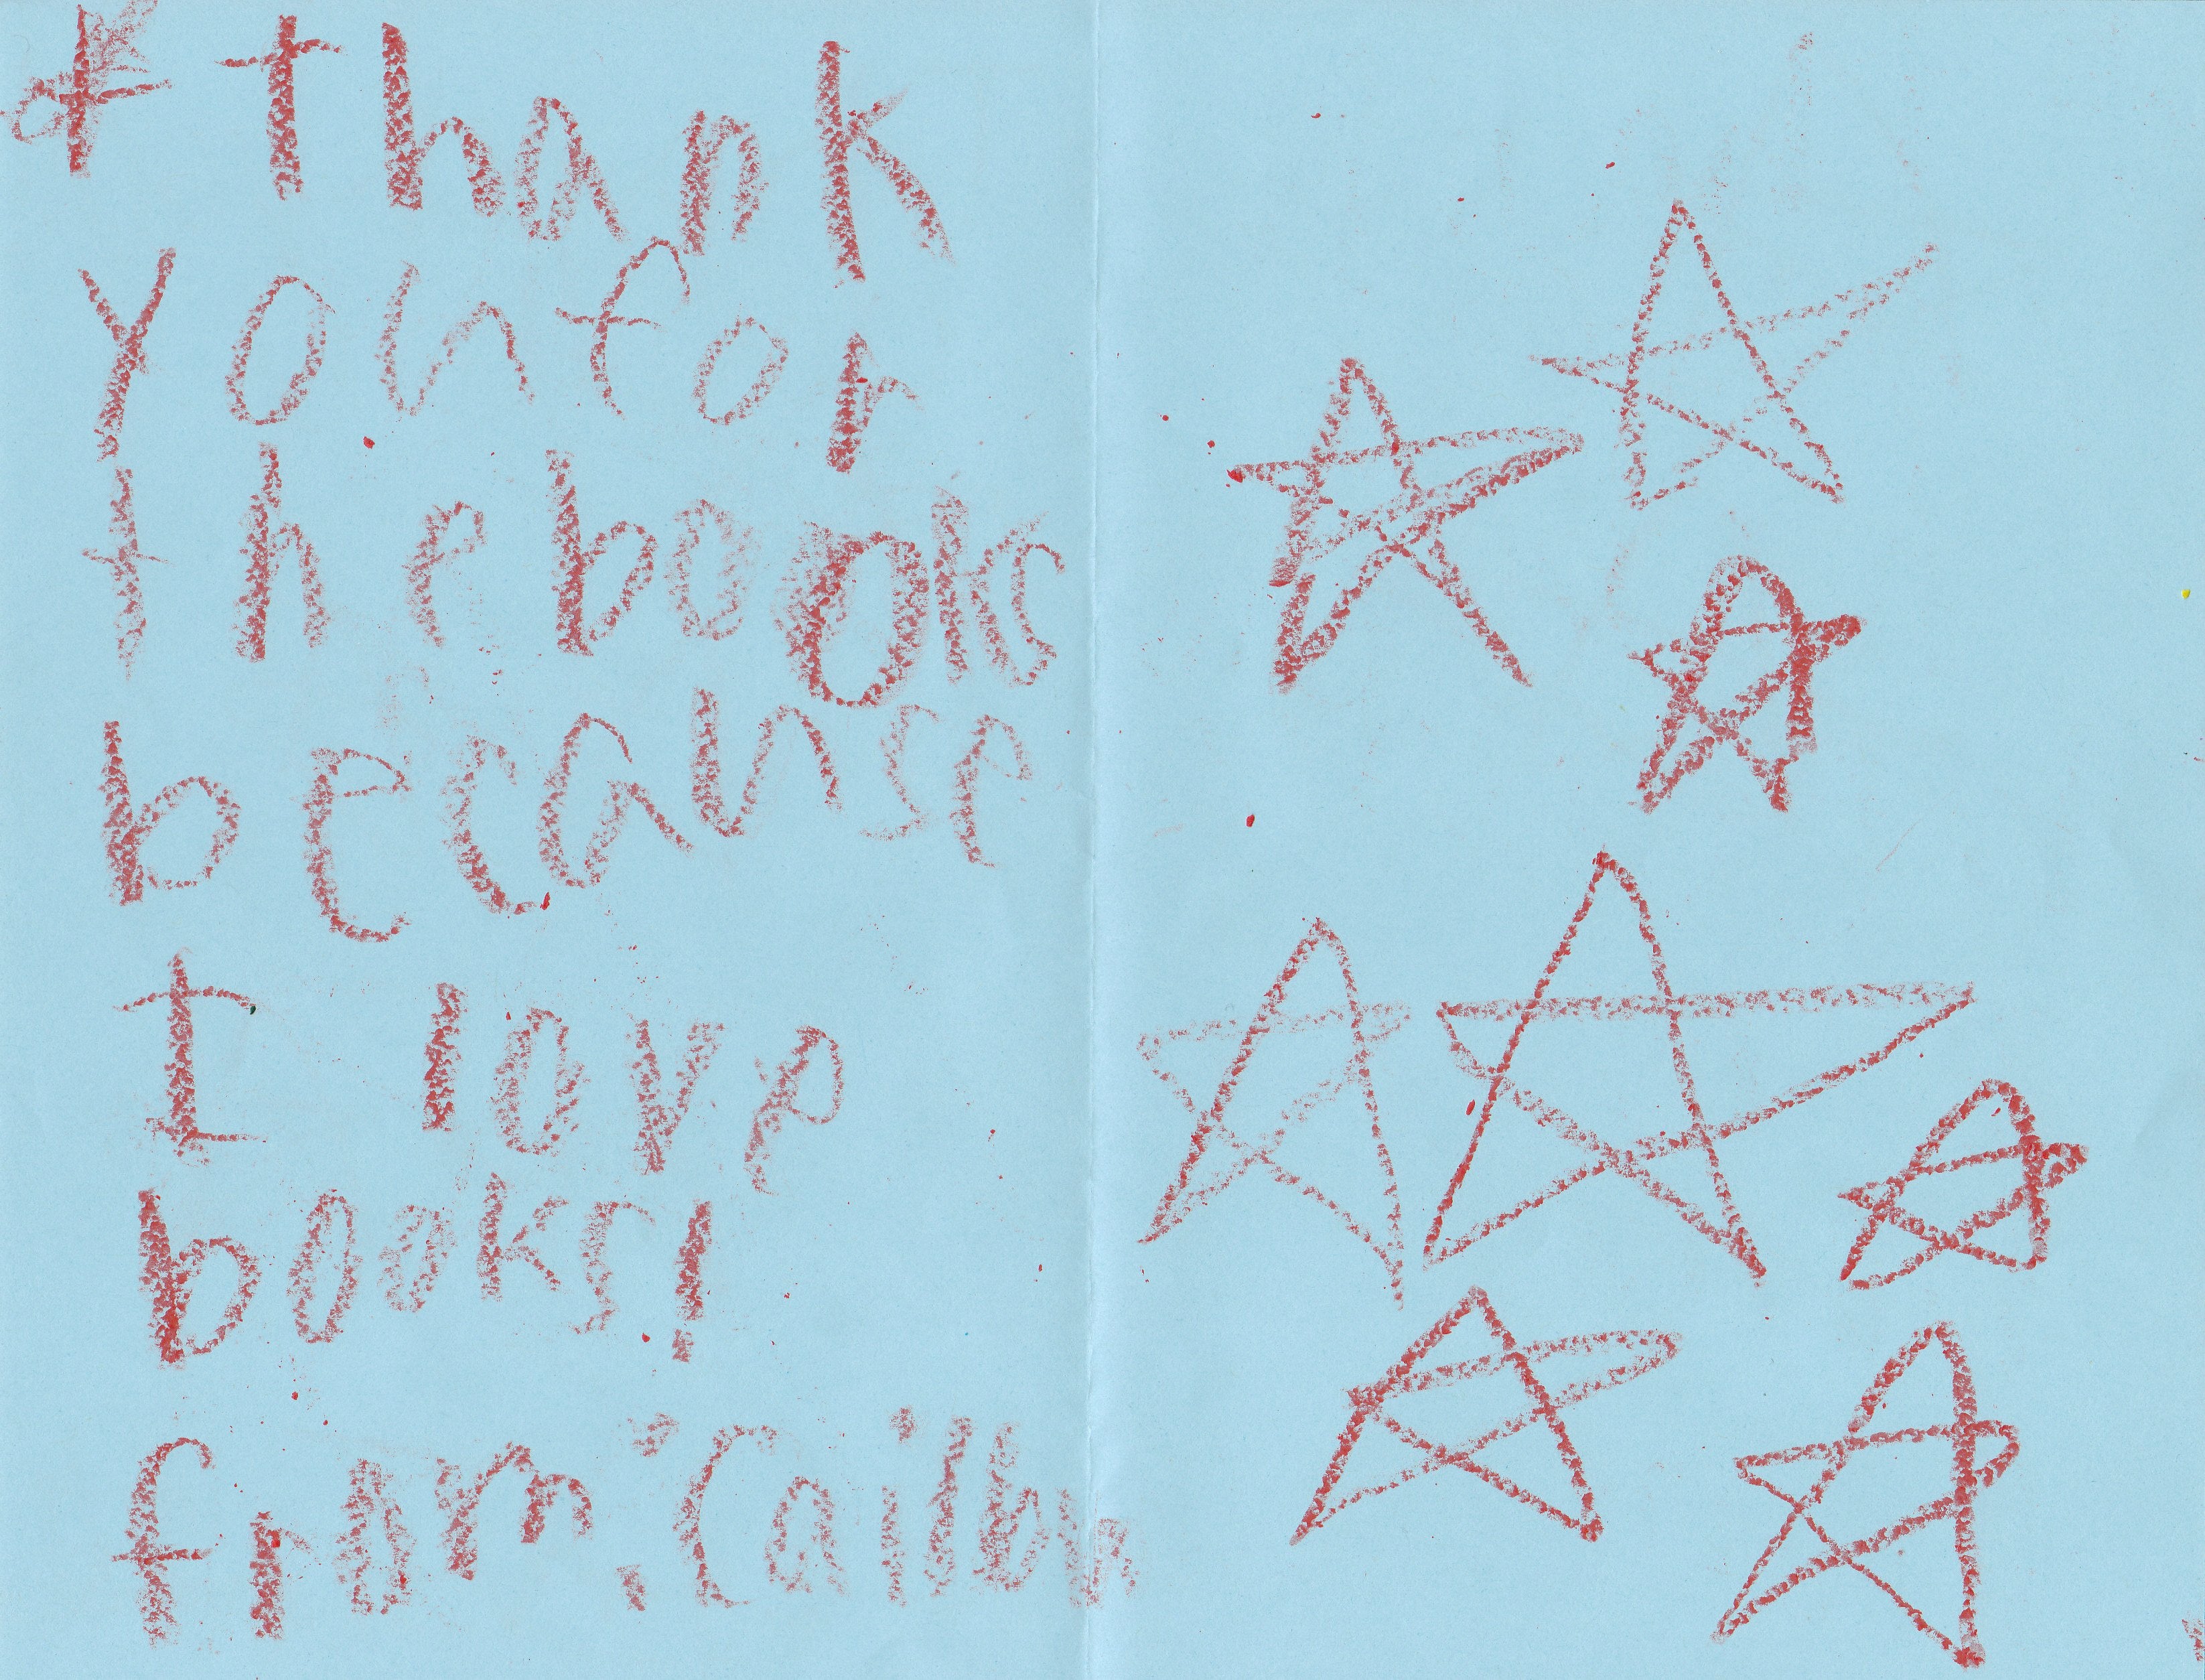 thank
you for
the books
because
I love
books!
from: